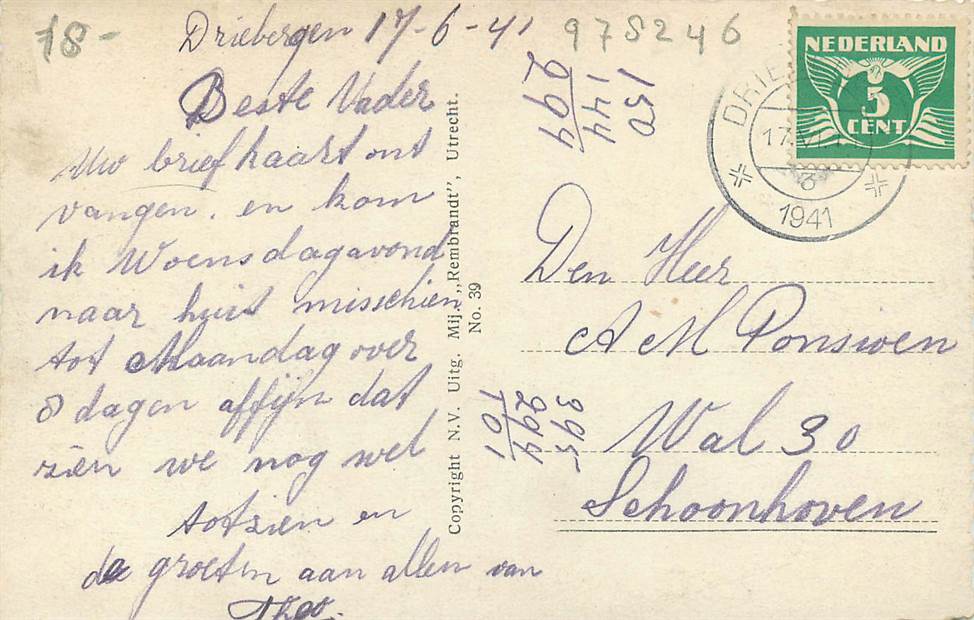 18-
Driebergen 17-6-41
978246
Beste Vader
Uw briefkaart ont
vangen. en kom
ik Woensdagavond
naar huis misschien
tot Maandag over
8 dagen affijn dat
zien we nog wel
tot zien en
de groeten aan allen van
Theo.
Copyright N.V. Uitg. Mij. „Rembrandt”, Utrecht.
No. 39
150
144
294
395
294
101
NEDERLAND
5
CENT
DRIE
17.VI
3
1941
Den Heer
A M Ponsioen
Wal 30
Schoonhoven